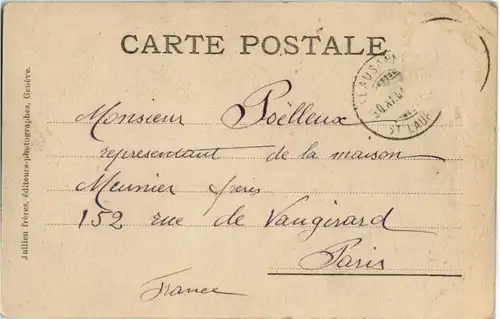 CARTE POSTALE
LAUSANNE
ST LAUR
Monsieur Poëlleux
représentant de la maison
Meunier frères
152 rue de Vaugirard
Paris
France
Jullien frères, éditeurs-photographes, Genève.